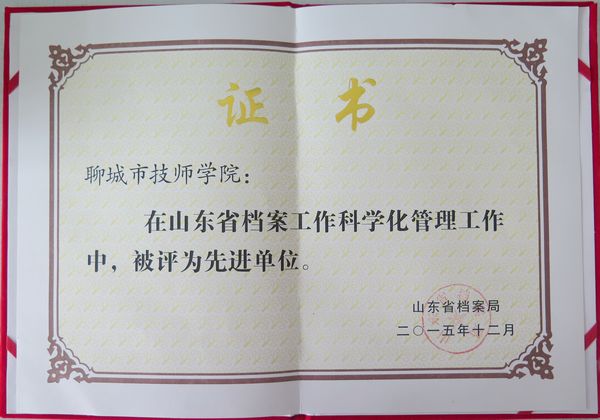 证 书
聊城市技师学院：
在山东省档案工作科学化管理工作
中，被评为先进单位。
山东省档案局
二〇一五年十二月